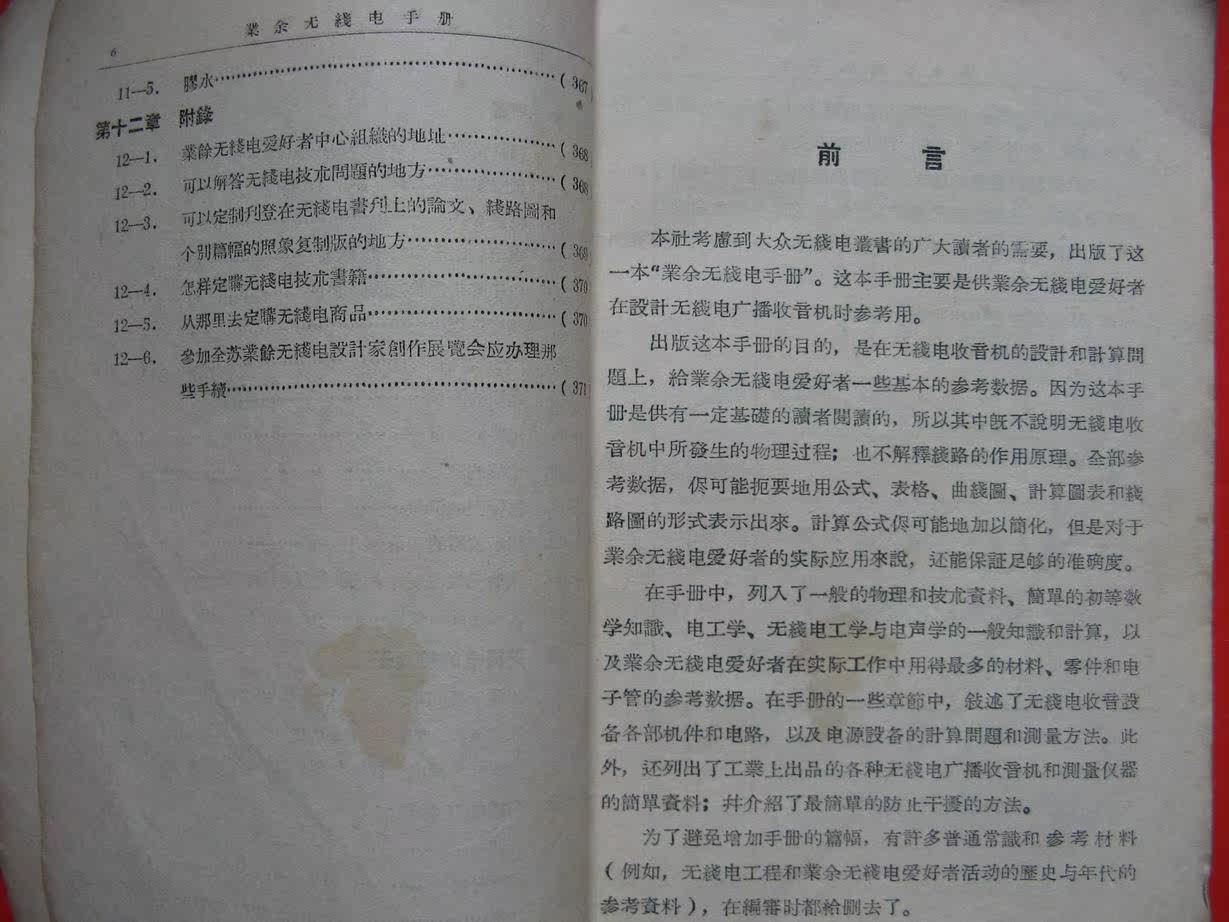 業余无綫电手册
6
11—5. 膠水……(367)
第十二章 附錄
12—1. 業餘无綫电爱好者中心組織的地址……(368)
12—2. 可以解答无綫电技朮問題的地方……(368)
12—3. 可以定制刋登在无綫电書刋上的論文、綫路圖和
个別篇幅的照象复制版的地方……(369)
12—4. 怎样定購无綫电技朮書籍……(370)
12—5. 从那里去定購无綫电商品……(370)
12—6. 參加全苏業餘无綫电設計家創作展覽会应办理那
些手續……(371)
前言
本社考慮到大众无綫电叢書的广大讀者的需要，出版了这
一本“業余无綫电手册”。这本手册主要是供業余无綫电爱好者
在設計无綫电广播收音机时参考用。
出版这本手册的目的，是在无綫电收音机的設計和計算問
題上，給業余无綫电爱好者一些基本的参考数据。因为这本手
册是供有一定基礎的讀者閱讀的，所以其中旣不說明无綫电收
音机中所發生的物理过程；也不解釋綫路的作用原理。全部参
考数据，侭可能扼要地用公式、表格、曲綫圖、計算圖表和綫
路圖的形式表示出來。計算公式侭可能地加以簡化，但是对于
業余无綫电爱好者的实际应用來說，还能保証足够的准确度。
在手册中，列入了一般的物理和技朮資料、簡單的初等数
学知識、电工学、无綫电工学与电声学的一般知識和計算，以
及業余无綫电爱好者在实际工作中用得最多的材料、零件和电
子管的参考数据。在手册的一些章節中，敍述了无綫电收音設
备各部机件和电路，以及电源設备的計算問題和測量方法。此
外，还列出了工業上出品的各种无綫电广播收音机和測量仪器
的簡單資料；幷介紹了最簡單的防止干擾的方法。
为了避免增加手册的篇幅，有許多普通常識和参考材料
（例如，无綫电工程和業余无綫电爱好者活动的歷史与年代的
参考資料），在編審时都給刪去了。